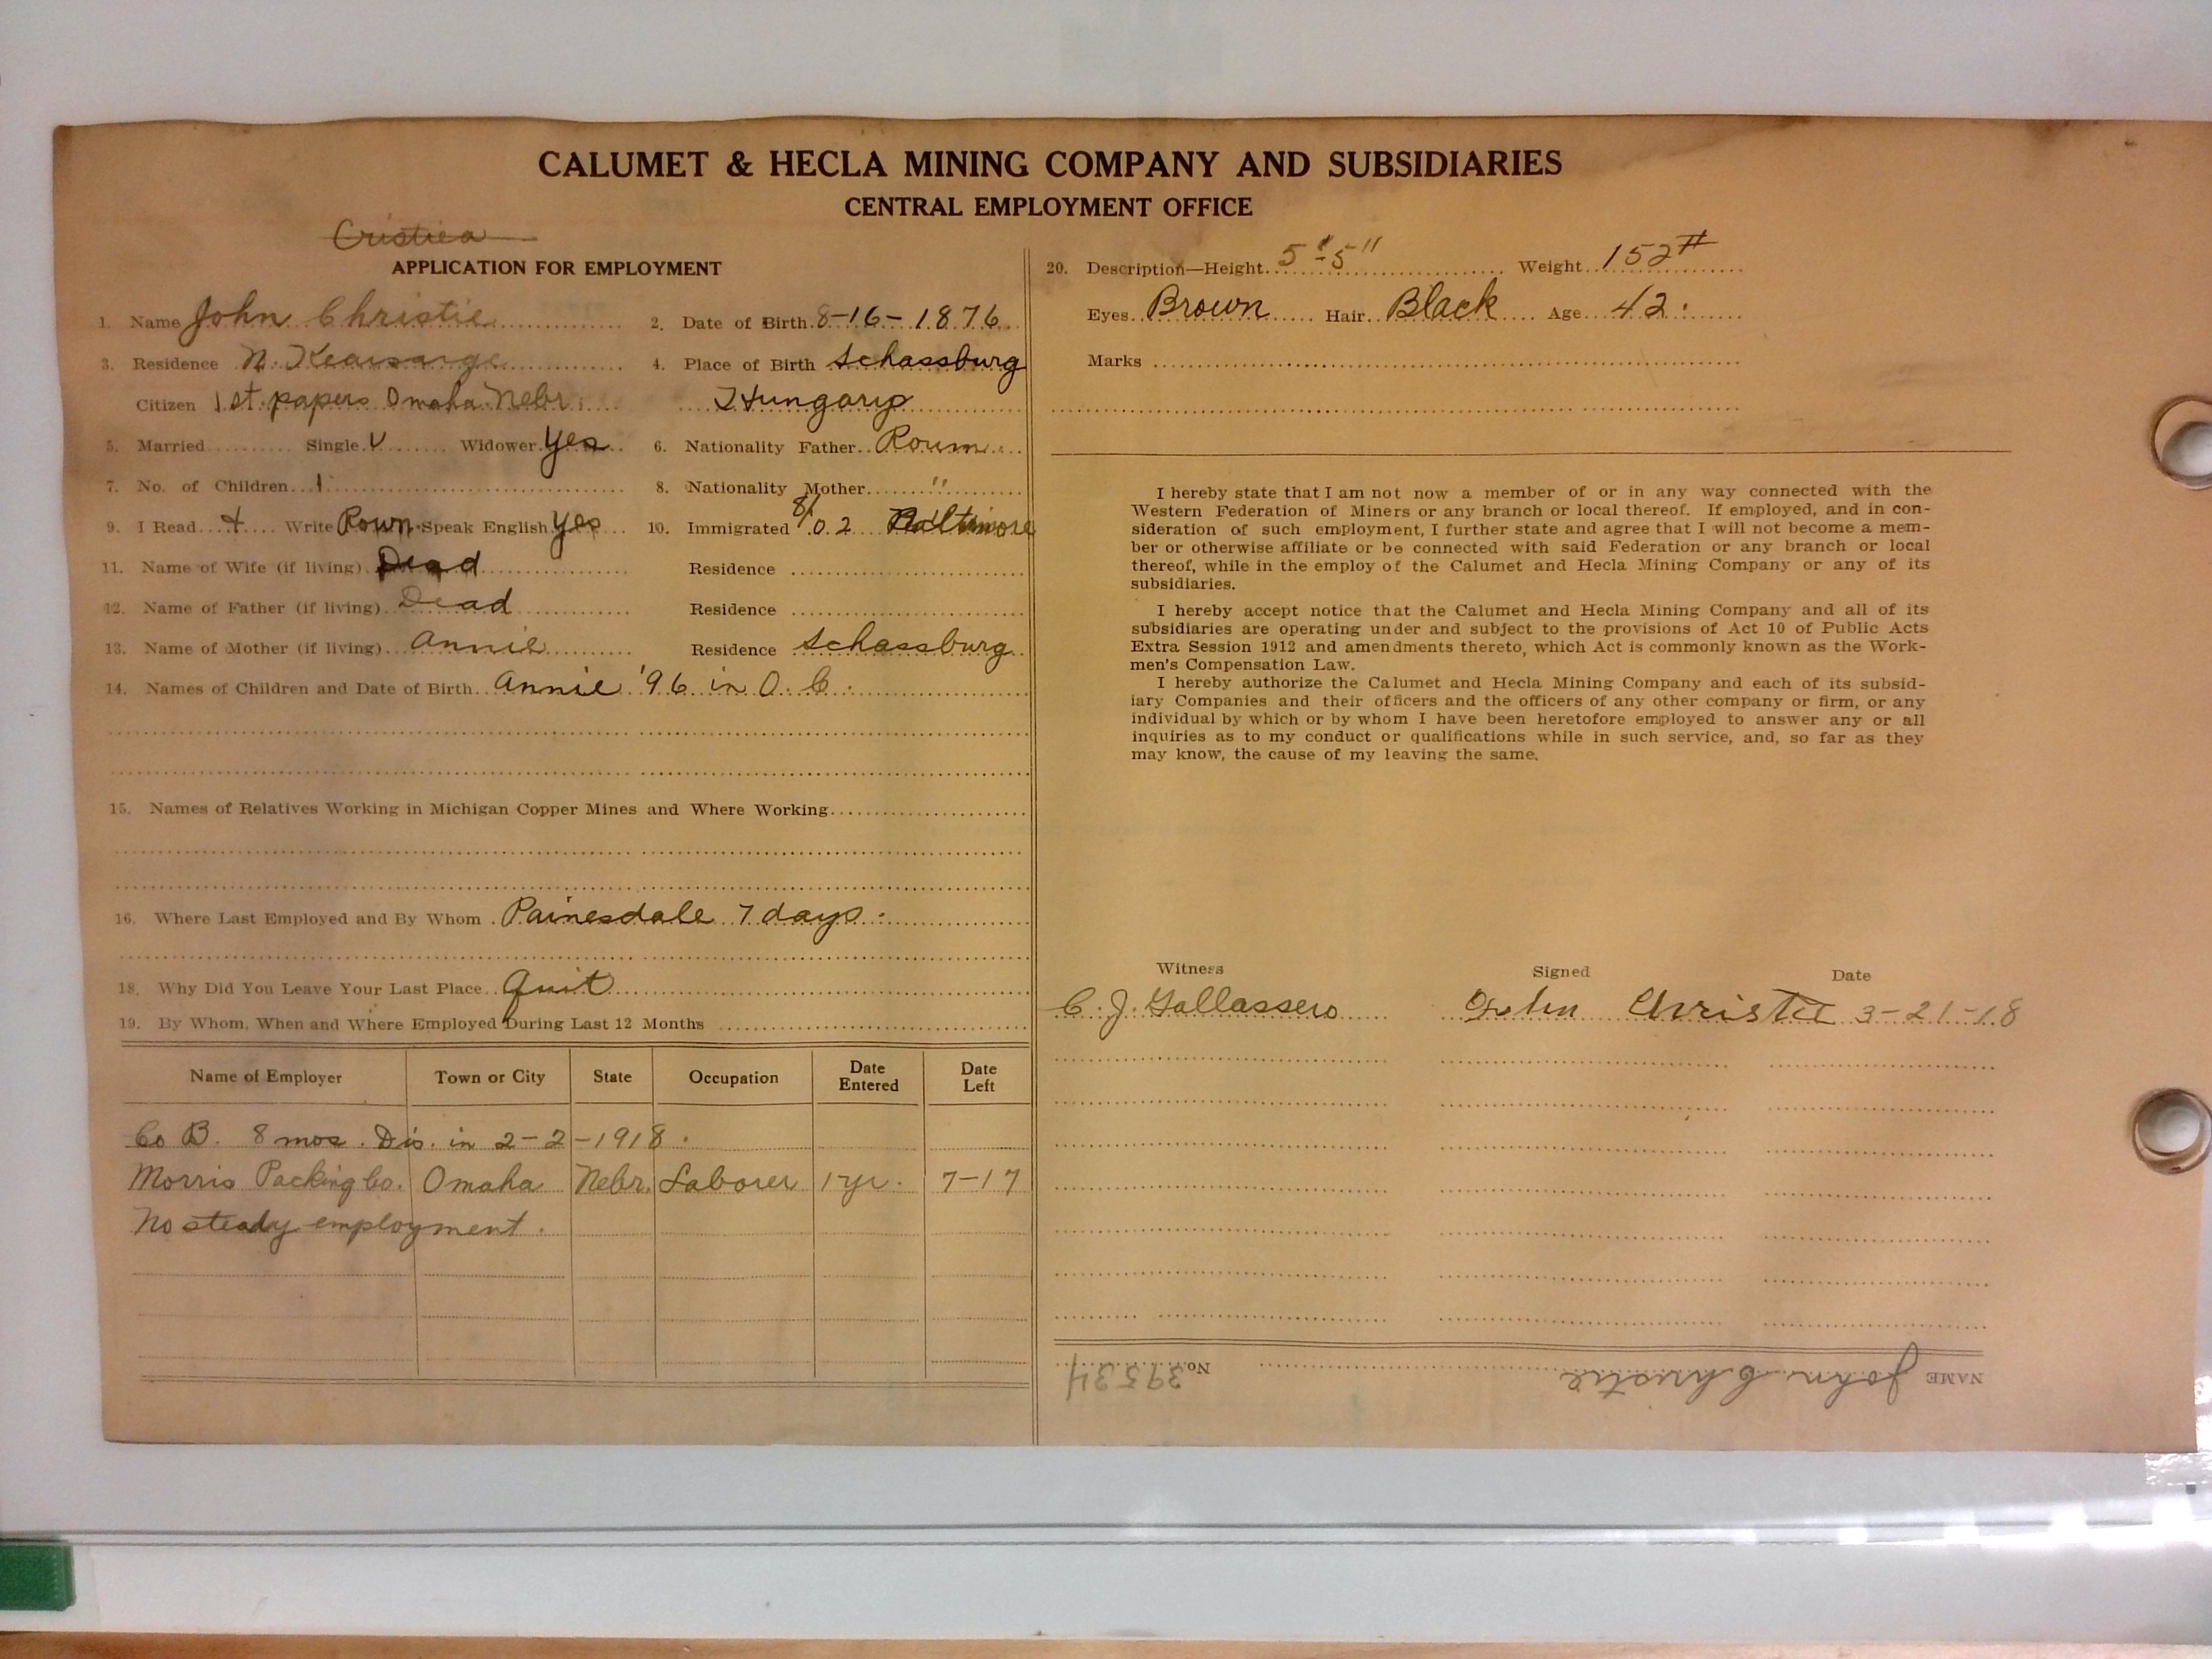 CALUMET & HECLA MINING COMPANY AND SUBSIDIARIES
CENTRAL EMPLOYMENT OFFICE
Cristiea
APPLICATION FOR EMPLOYMENT
1. Name John Christie
2. Date of Birth 8-16-1876
3. Residence N. Kearsarge
4. Place of Birth Schassburg
Citizen 1st papers Omaha Nebr.
Hungary
5. Married Single V Widower Yes
6. Nationality Father Roum.
7. No. of Children 1
8. Nationality Mother "
9. I Read + Write Roum Speak English Yes
10. Immigrated 8/02 Baltimore
11. Name of Wife (if living) Dead Residence
12. Name of Father (if living) Dead Residence
13. Name of Mother (if living) Annie Residence Schassburg
14. Names of Children and Date of Birth Annie '96 in O. C.
15. Names of Relatives Working in Michigan Copper Mines and Where Working
16. Where Last Employed and By Whom Painesdale 7 days.
18. Why Did You Leave Your Last Place Quit
19. By Whom, When and Where Employed During Last 12 Months
Name of Employer Town or City State Occupation Date Entered Date Left
Co B. 8 mos. Dis. in 2-2-1918.
Morris Packing Co. Omaha Nebr. Laborer 1 yr. 7-17
No steady employment.
20. Description—Height 5'-5" Weight 152#
Eyes Brown Hair Black Age 42.
Marks
I hereby state that I am not now a member of or in any way connected with the
Western Federation of Miners or any branch or local thereof. If employed, and in con-
sideration of such employment, I further state and agree that I will not become a mem-
ber or otherwise affiliate or be connected with said Federation or any branch or local
thereof, while in the employ of the Calumet and Hecla Mining Company or any of its
subsidiaries.
I hereby accept notice that the Calumet and Hecla Mining Company and all of its
subsidiaries are operating under and subject to the provisions of Act 10 of Public Acts
Extra Session 1912 and amendments thereto, which Act is commonly known as the Work-
men's Compensation Law.
I hereby authorize the Calumet and Hecla Mining Company and each of its subsid-
iary Companies and their officers and the officers of any other company or firm, or any
individual by which or by whom I have been heretofore employed to answer any or all
inquiries as to my conduct or qualifications while in such service, and, so far as they
may know, the cause of my leaving the same.
Witness Signed Date
C. J. Gallassero John Christie 3-21-18
NAME John Christie No. 39534